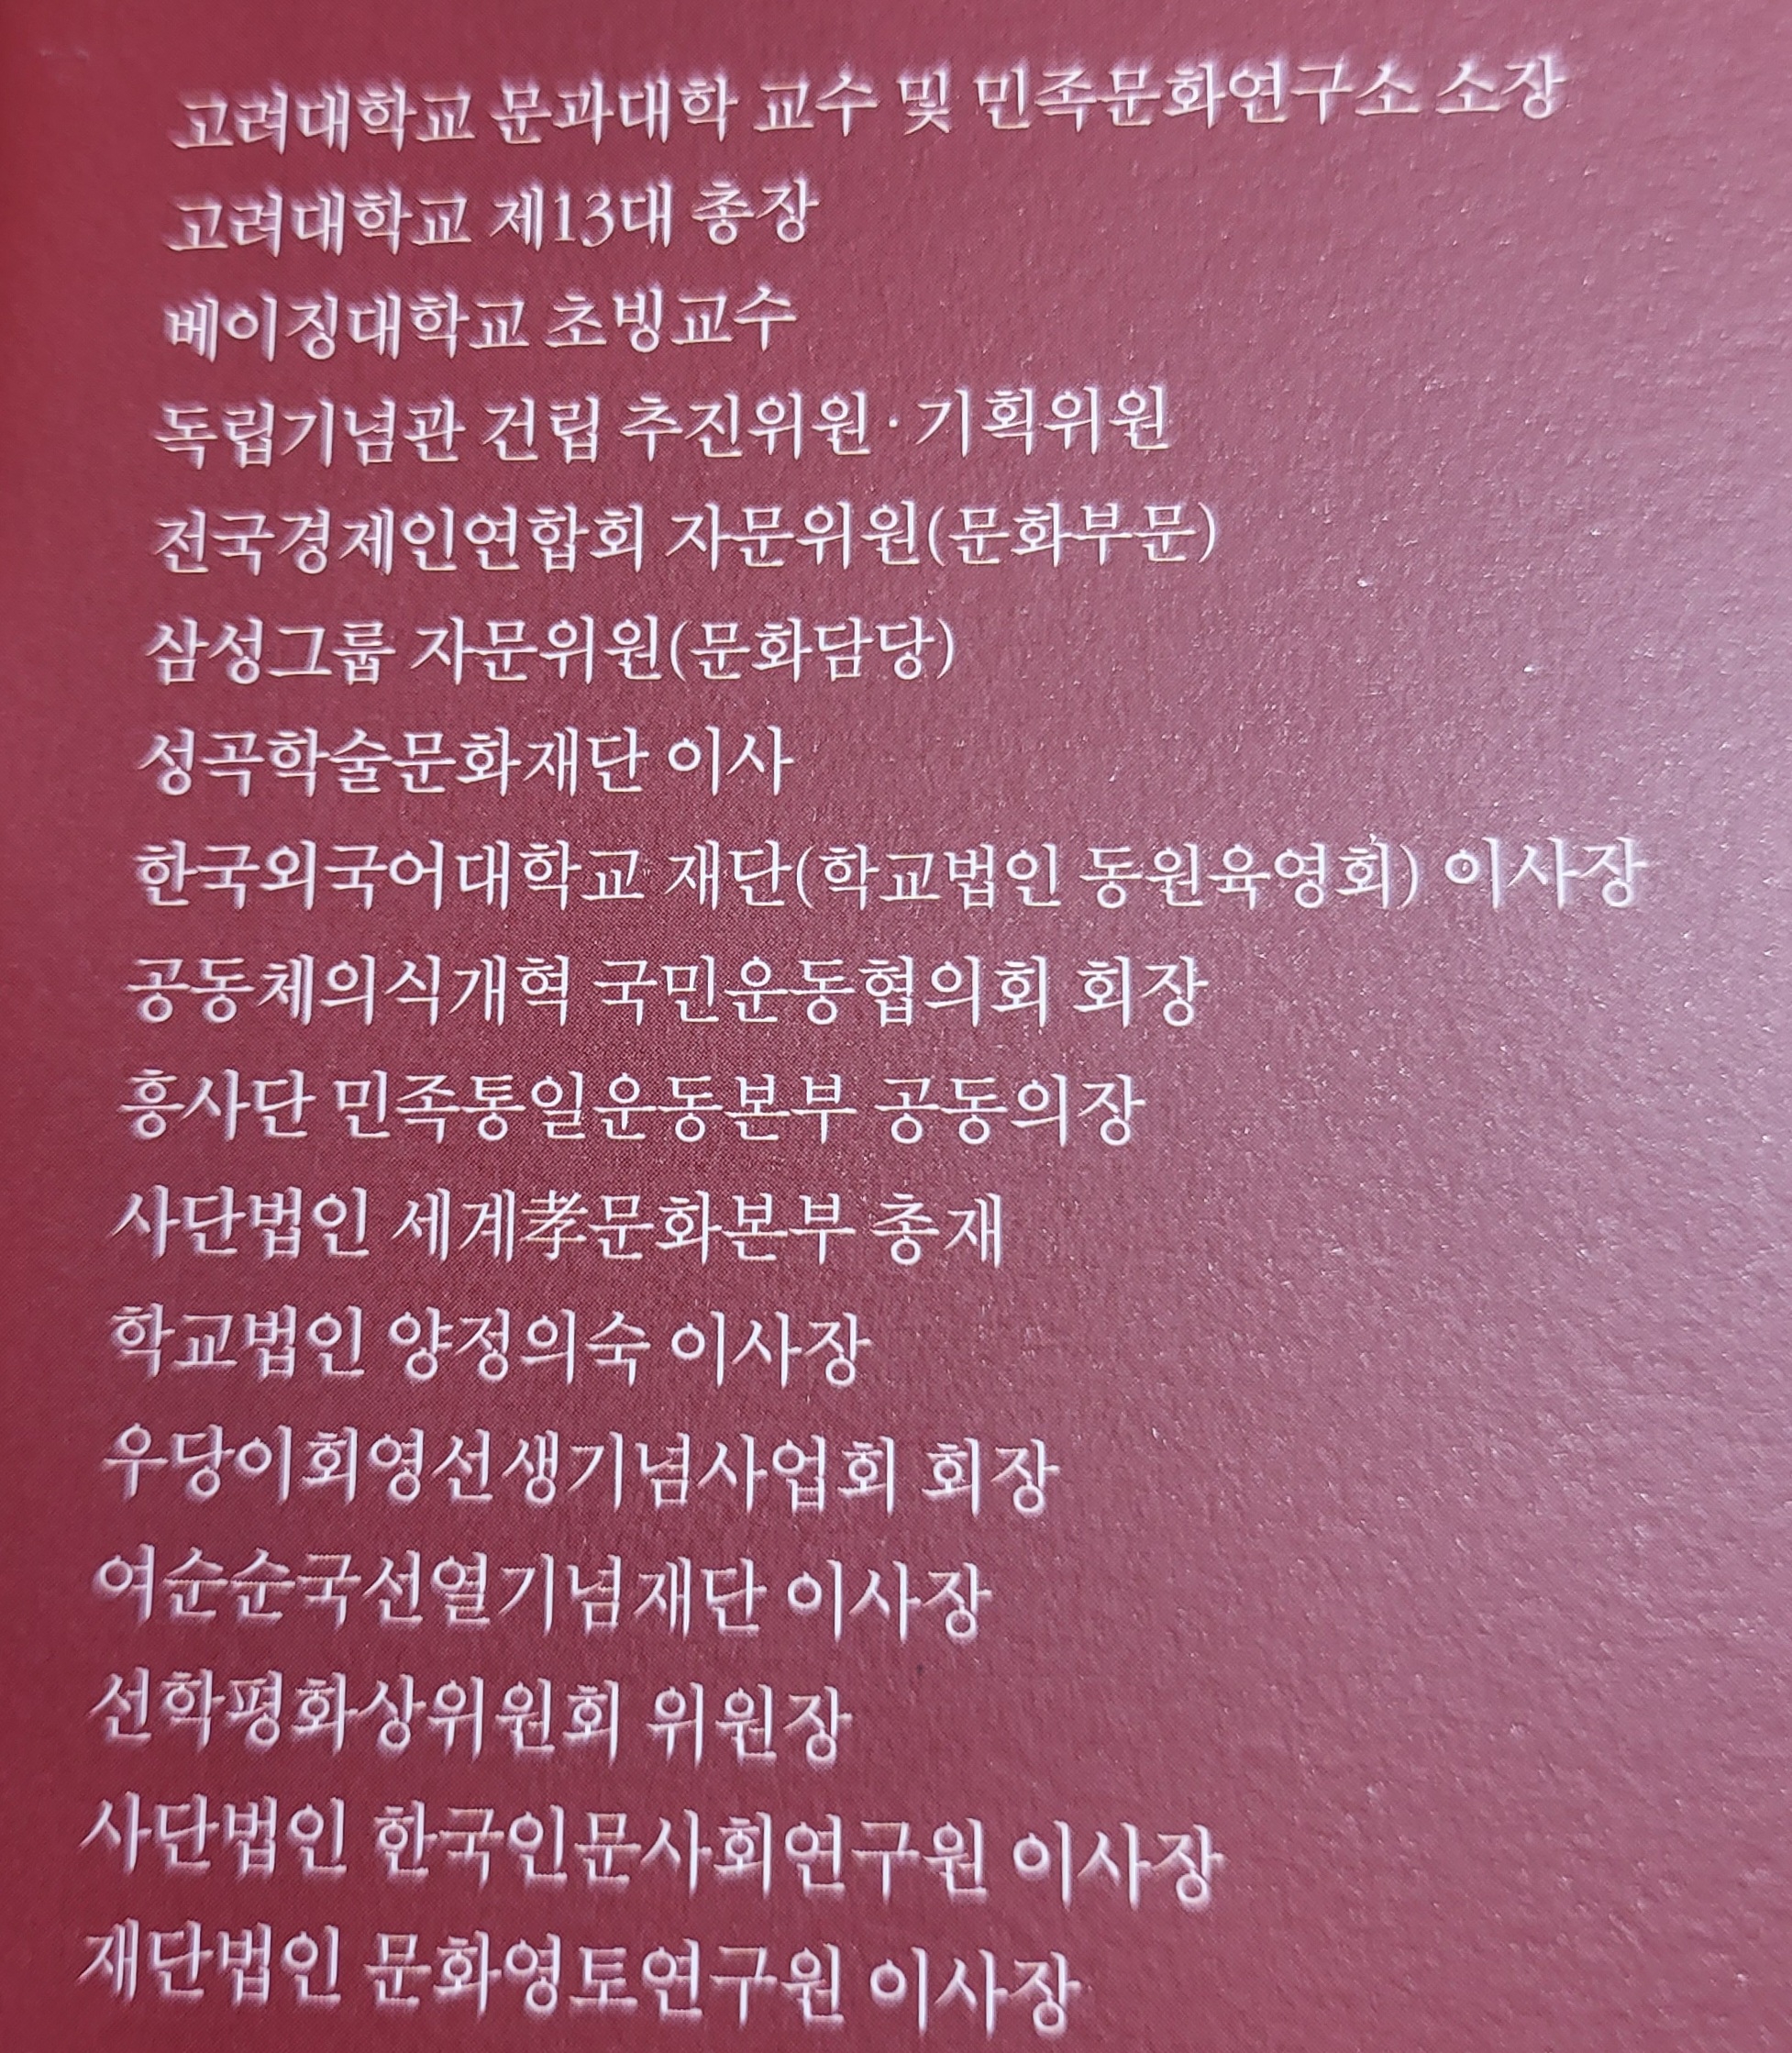 고려대학교 문과대학 교수 및 민족문화연구소 소장
고려대학교 제13대 총장
베이징대학교 초빙교수
독립기념관 건립 추진위원·기획위원
전국경제인연합회 자문위원(문화부문)
삼성그룹 자문위원(문화담당)
성곡학술문화재단 이사
한국외국어대학교 재단(학교법인 동원육영회) 이사장
공동체의식개혁 국민운동협의회 회장
흥사단 민족통일운동본부 공동의장
사단법인 세계孝문화본부 총재
학교법인 양정의숙 이사장
우당이회영선생기념사업회 회장
여순순국선열기념재단 이사장
선학평화상위원회 위원장
사단법인 한국인문사회연구원 이사장
재단법인 문화영토연구원 이사장